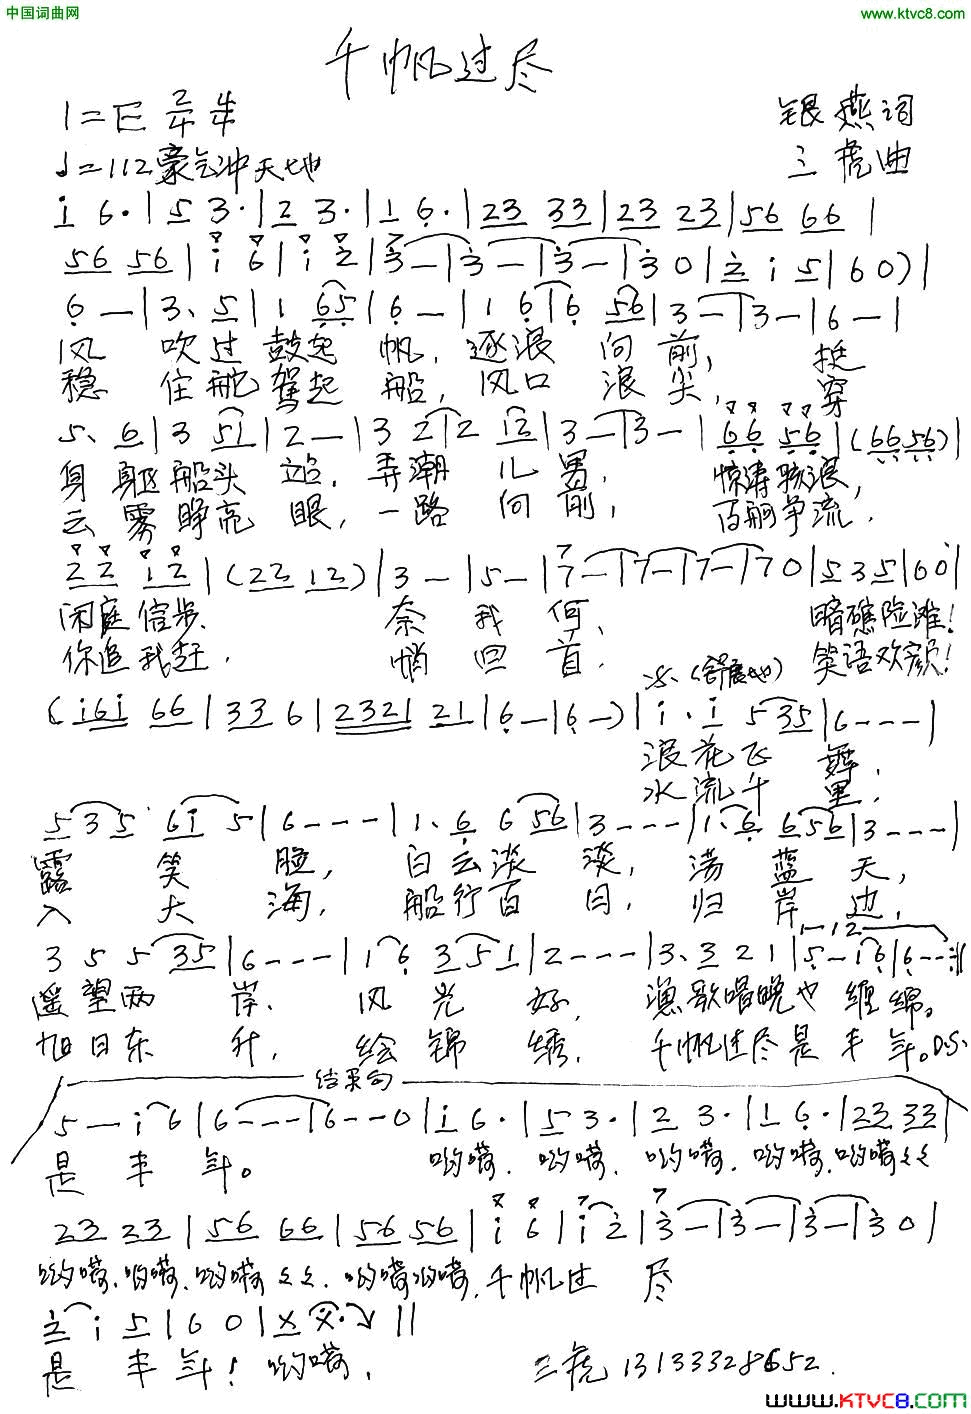 中国词曲网
www.ktvc8.com
千帆过尽
1=E 2/4 4/4
♩=112 豪气冲天地
银燕词
三虎曲
i 6· | 5 3· | 2 3· | 1 6· | 23 33 | 23 23 | 56 66 |
56 56 | i 6 | i 2 | 3 — | 3 — | 3 — | 3 0 | 2 i 5 | 6 0 ) |
6 — | 3、5 | 1 65 | 6 — | 1 6 | 6 56 | 3 — | 3 — | 6 — |
风 吹过鼓起 帆，逐浪 向 前， 挺
稳 住舵驾起 船，风口 浪 尖， 穿
5、6 | 3 51 | 2 — | 3 2 | 2 12 | 3 — | 3 — | 66 56 | (66 56) |
身躯船头 立，弄潮 儿 男， 惊涛骇浪，
云雾睁亮 眼，一路 向 前， 百舸争流，
22 12 | (22 12) | 3 — | 5 — | 7 — | 7 — | 7 — | 7 0 | 5 3 5 | 6 0 |
闲庭信步、 奈 我 何， 暗礁险滩！
你追我赶， 悄 回 首， 笑语欢颜！
(i6i 66 | 33 6 | 2321 21 | 6 — | 6 —) | i · i 5 35 | 6 - - - |
(舒展地)
浪花飞 舞，
水流千 里，
5 3 5 6i 5 | 6 - - - | 1、6 6 56 | 3 - - - | 1、6 6 56 | 3 - - - |
露 笑 脸， 白云淡 淡， 荡 蓝 天，
入 大 海， 船行百 日， 归 岸 边，
3 5 5 35 | 6 - - - | 1 6 3 5 1 | 2 - - - | 3、3 2 1 | 5 — i 6 | 6 - - :||
12
遥望两 岸、 风 光 好， 渔歌唱晚也 缠 绵。
旭日东 升， 绘 锦 绣， 千帆过尽是 丰 年。D.S.
结束句
5 — i 6 | 6 - - - | 6 - - 0 | i 6· | 5 3· | 2 3· | 1 6· | 23 33 |
是 丰 年。 哟嗬、哟嗬、哟嗬、哟嗬、哟嗬
23 23 | 56 66 | 56 56 | i 6 | i 2 | 3 — | 3 — | 3 — | 3 0 |
哟嗬、哟嗬、哟嗬 哟嗬哟嗬，千帆过 尽
2 i 5 | 6 0 | X X· ||
是 丰 年！哟嗬，
三虎 13133328652.
www.KTVC8.com